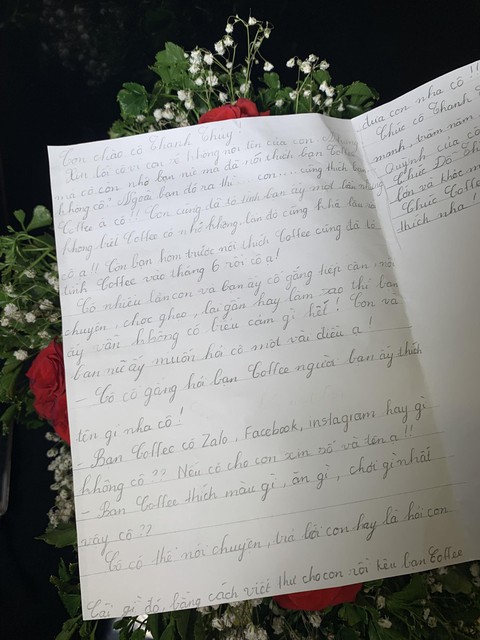 Con chào cô Thanh Thúy
Xin lỗi cô vì con sẽ không nói tên của con
mà cô con nhớ bạn nữ mà đã nói thích bạn
không cô? Ngoài bạn đó ra thì... con... cũng thích bạn
Coffee á cô!! Con cũng đã tỏ tình bạn ấy một lần
không biết Coffee có nhớ không, lần đó cũng khá lâu
cô ạ!! Còn bạn hôm trước nói thích Coffee cũng đã tỏ
tình Coffee vào tháng 6 rồi cô ạ!
Có nhiều lần con và bạn ấy cố gắng tiếp cận, nói
chuyện, chọc ghẹo, lại gần hay làm sao thì bạn
ấy vẫn không có biểu cảm gì hết! Con và
bạn nữ ấy muốn hỏi cô một vài điều ạ!
- Cô cố gắng hỏi bạn Coffee người bạn ấy thích
tên gì nha cô!
- Bạn Coffee có Zalo, Facebook, instagram hay gì
không cô?? Nếu có cho con xin số và tên ạ!!
- Bạn Coffee thích màu gì, ăn gì, chơi gì nhất
vậy cô??
Cô có thể nói chuyện, trả lời con hay là hỏi con
Cái gì đó, bằng cách viết thư cho con rồi kêu bạn Coffee
đưa con nha cô!!
Chúc cô Thanh
mạnh, trăm năm
Quỳnh của cô
Chúc Đỗ
lớn và
Chúc Coffee
thích nha!